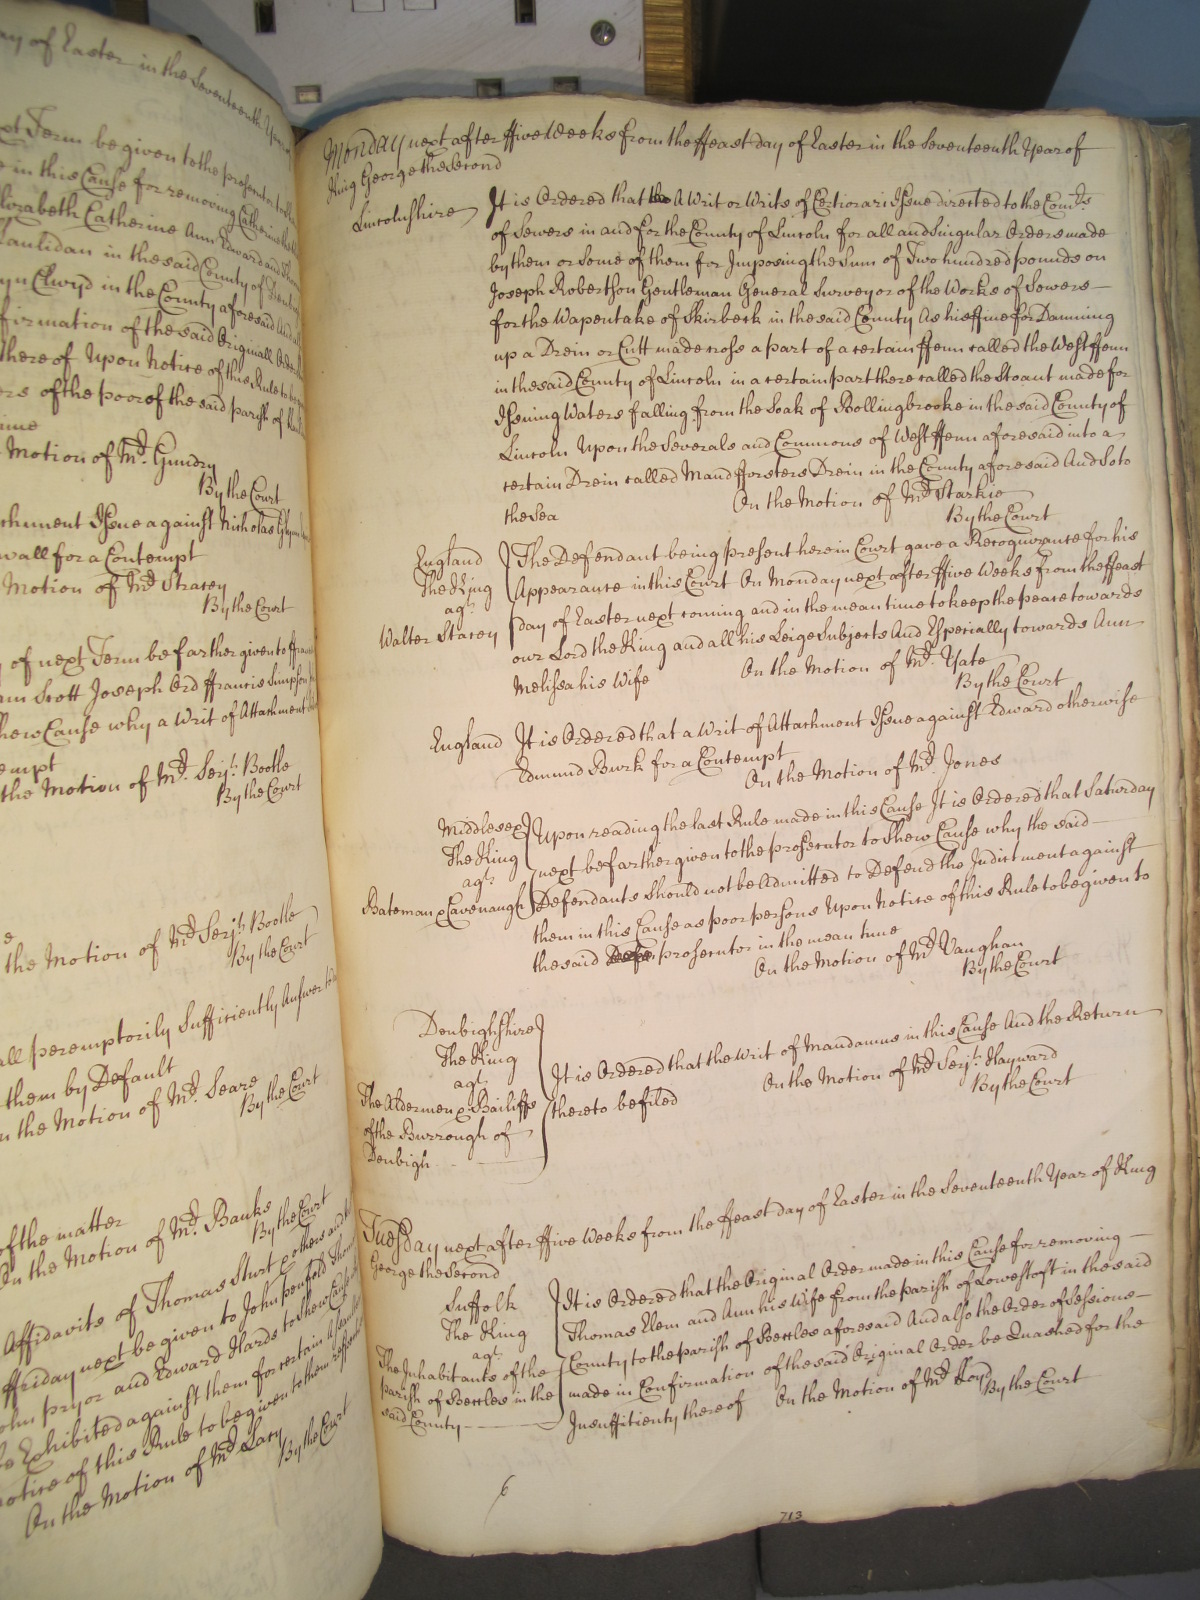 ay of Easter in the Seventeenth Year
xt Term be given to the prosecutor
e in this Cause for removing Catherine
Elizabeth Catherine Ann Edward and
Llanlidan in the said County of Denbigh
yn Clwyd in the County aforesaid And
firmation of the said Originall Order
thereof Upon Notice of this Rule to be
ers of the poor of the said parish of
ime
Motion of Mr. Gundry
By the Court
chment Issue against Nicholas
wall for a Contempt
Motion of Mr. Stracey
By the Court
of next Term be farther given to
am Scott Joseph Ord ffrancis Simpson
shew Cause why a Writ of Attachment
empt
the Motion of Mr. Serjt. Bootle
By the Court
e
the Motion of Mr. Serjt. Bootle
By the Court
all peremptorily Sufficiently Answer
them by Default
n the Motion of Mr. Seare
By the Court
of the matter
On the Motion of Mr. Banks
By the Court
Affidavits of Thomas Sturt & others and
ffriday next be given to John penfold
ohn pryor and Edward Hards to shew Cause
be Exhibited against them for certain
otice of this Rule to be given to them
On the Motion of Mr. Lacy
By the Court
Monday next after ffive Weeks from the ffeast day of Easter in the Seventeenth Year of
King George the Second
Lincolnshire It is Ordered that A Writ or Writs of Certiorari Issue directed to the Comrs.
of Sewers in and for the County of Lincoln for all and Singular Orders made
by them or some of them for Imposing the Sum of Two hundred pounds on
Joseph Robertson Gentleman General Surveyor of the Works of Sewers
for the Wapentake of Skirbeck in the said County As his ffine for Damning
up a Drein or Cutt made cross a part of a certain ffenn called the West ffenn
in the said County of Lincoln in a certain part there called the Stoant made for
Issuing Waters falling from the Soak of Bollingbrooke in the said County of
Lincoln Upon the Severals and Commons of West ffenn aforesaid into a
certain Drein called Maud fforsters Drein in the County aforesaid And So to
the Sea On the Motion of Mr. Starkie
By the Court
England The Defendant being present here in Court gave a Recognizance for his
The King Appearance in this Court On Monday next after ffive Weeks from the ffeast
agt.
Walter Stacey day of Easter next coming and in the mean time to keep the peace towards
our Lord the King and all his Leige Subjects And Especially towards Ann
Melissa his Wife On the Motion of Mr. Yate
By the Court
England It is Ordered that a Writ of Attachment Issue against Edward otherwise
Edmund Burk for a Contempt
On the Motion of Mr. Jones
Middlesex Upon reading the last Rule made in this Cause It is Ordered that Saturday
The King next be farther given to the prosecutor to Shew Cause why the said
agt.
Bateman & Cavenaugh Defendants should not be Admitted to Defend the Indictment against
them in this Cause as poor persons Upon Notice of this Rule to be given to
the said prosecutor in the mean time
On the Motion of Mr. Vaughan
By the Court
Denbighshire
The King
agt.
It is Ordered that the Writ of Mandamus in this Cause And the Return
The Aldermen & Bailiffs thereto be filed On the Motion of Mr. Serjt. Hayward
By the Court
of the Burrough of
Denbigh
Tuesday next after ffive Weeks from the ffeast day of Easter in the Seventeenth Year of King
George the Second
Suffolk It is Ordered that the Original Order made in this Cause for removing
The King Thomas Elem and Ann his Wife from the parish of Lowestoft in the said
agt.
The Inhabitants of the County to the parish of Beccles aforesaid And also the Order of Sessions
parish of Beccles in the made in Confirmation of the said Original Order be Quashed for the
said County Insufficienty thereof On the Motion of Mr. Loyd
By the Court
6
713